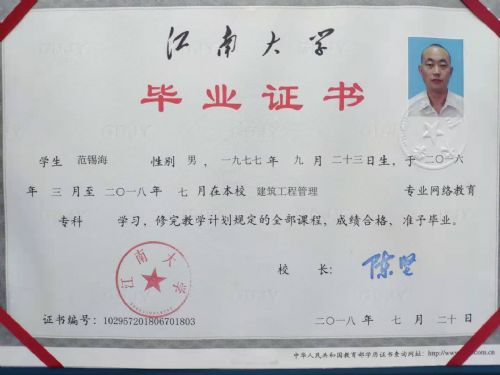 江南大学
毕业证书
学生 范锡海 性别 男，一九七七年 九 月 二十三日生，于 二〇一六
年 三 月至 二〇一八年 七 月在本校 建筑工程管理 专业网络教育
专科 学习，修完教学计划规定的全部课程，成绩合格，准予毕业。
江南大学
校 长： 陈坚
证书编号：102957201806701803
二〇一八年 七 月 二十日
中华人民共和国教育部学历证书查询网址：